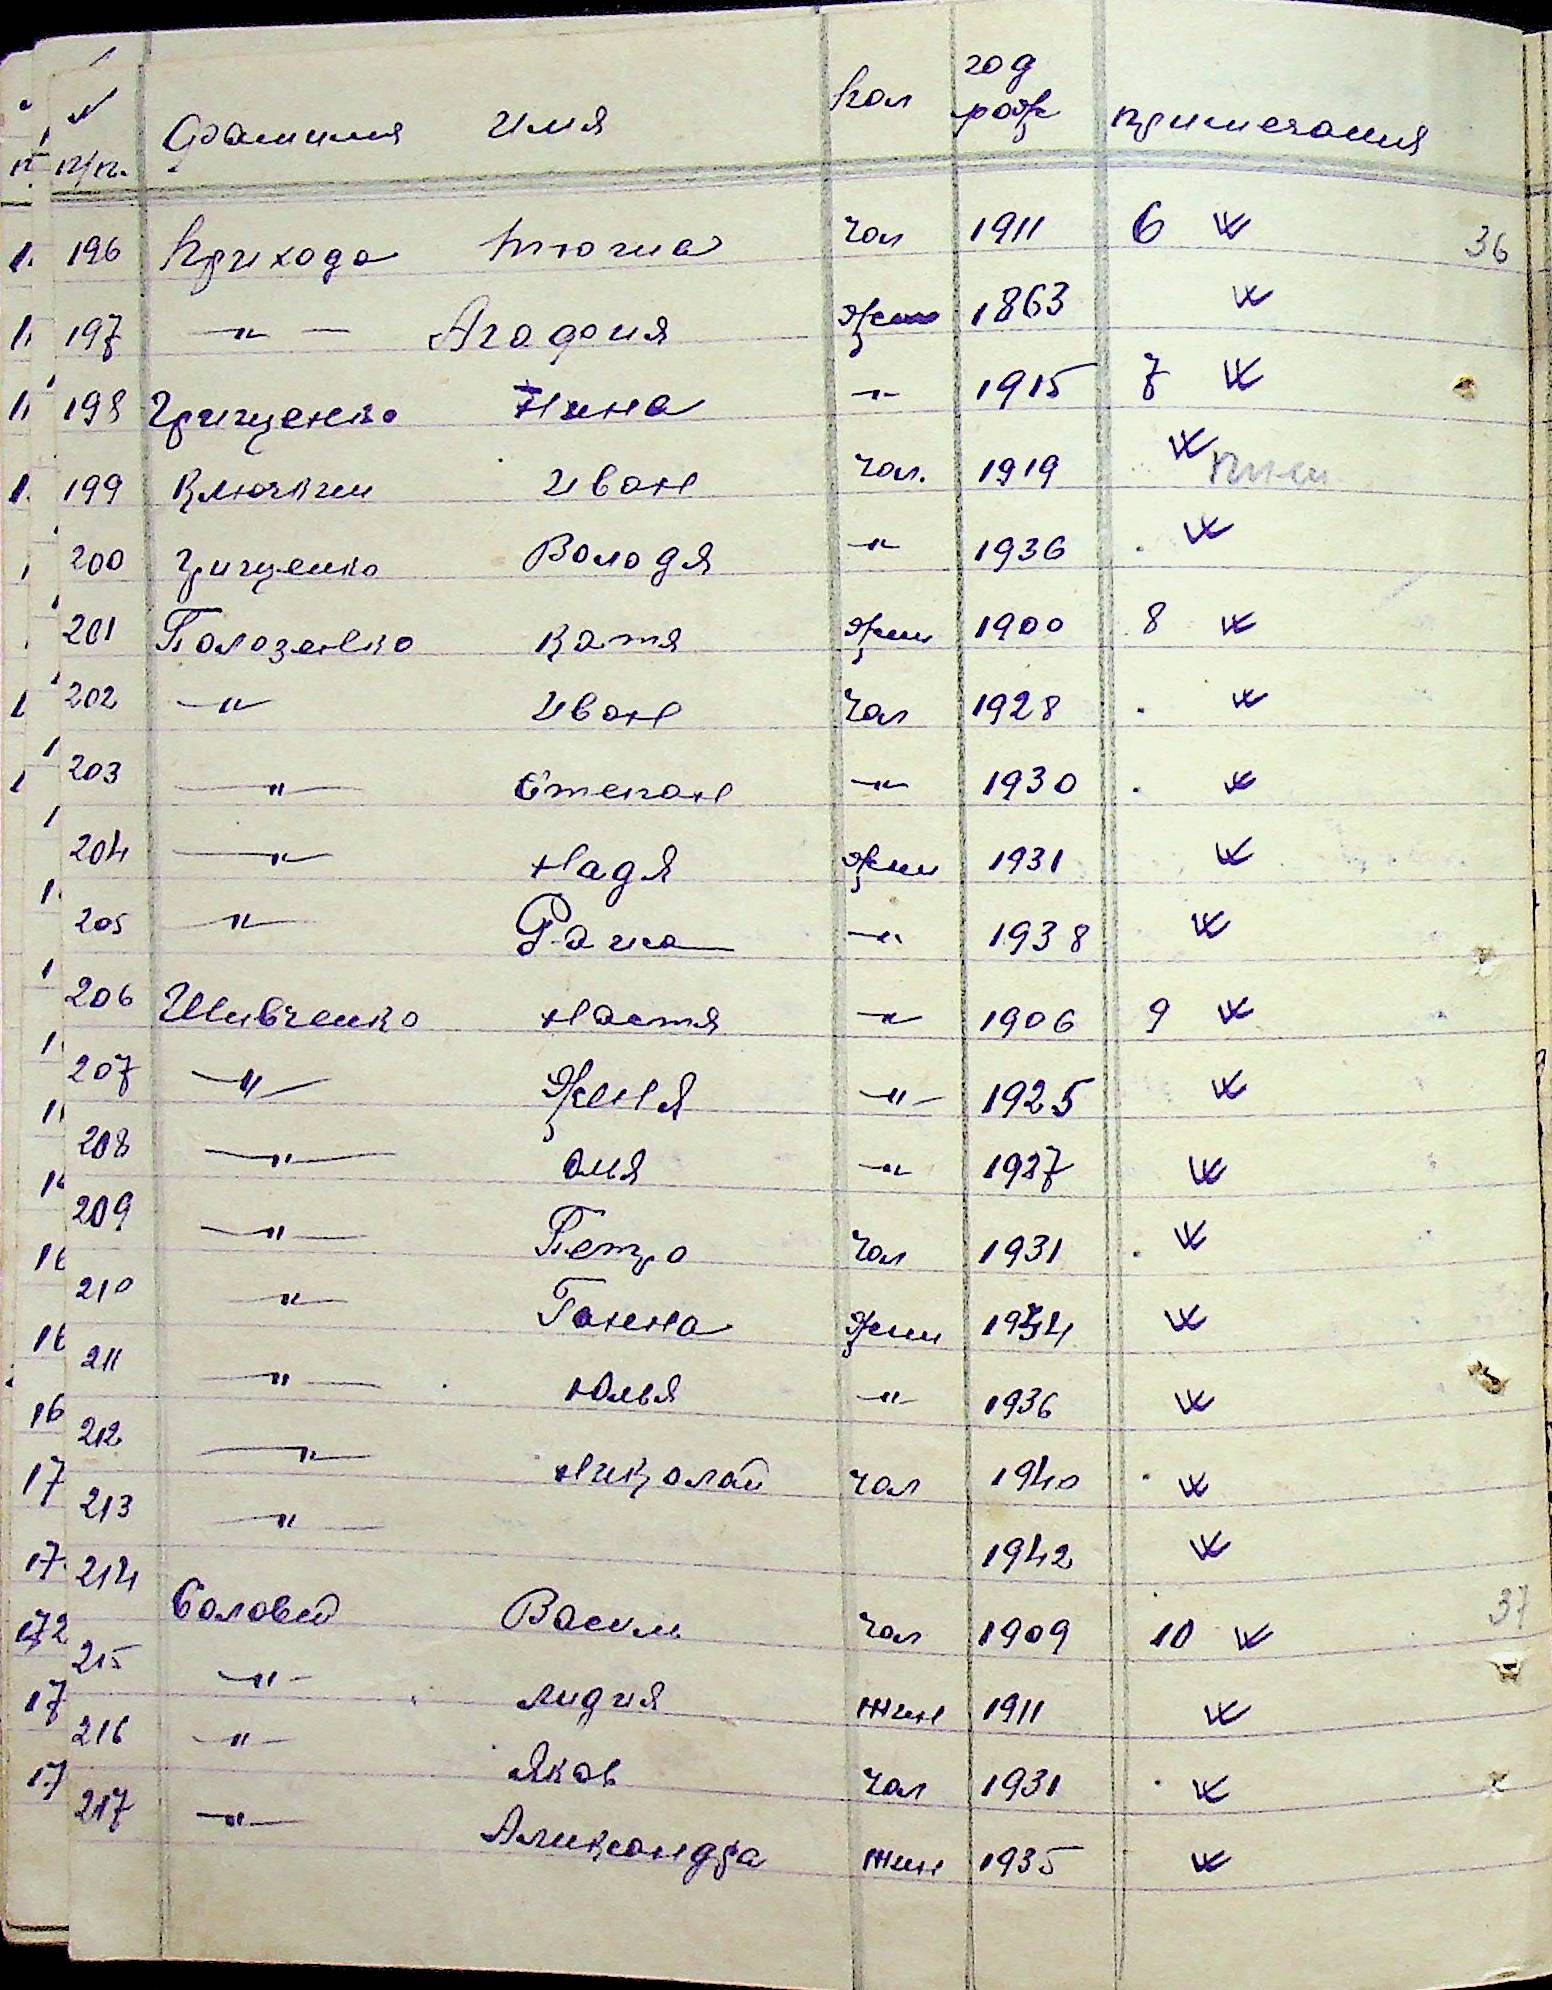 № п/п. Фамилия Имя пол год рожд примечания
196 Приходо чол 1911 6 36
197 —"— Агафия жен 1863
198 Грищенко Нина —"— 1915 7
199 Ключкин Иван чол. 1919
200 Грищенко Володя —"— 1936
201 Полозенко Катя жен 1900 8
202 —"— Иван чол 1928
203 —"— Степан —"— 1930
204 —"— Надя жен 1931
205 —"— —"— 1938
206 Шивченко Настя —"— 1906 9
207 —"— Женя —"— 1925
208 —"— Оля —"— 1927
209 —"— Петро чол 1931
210 —"— Ганна жен 1934
211 —"— Юлья —"— 1936
212 —"— Николай чол 1940
213 —"— 1942
214 Соловей Василь чол 1909 10 37
215 —"— Лидия жин 1911
216 —"— Яков чол 1931
217 —"— Александра жин 1935